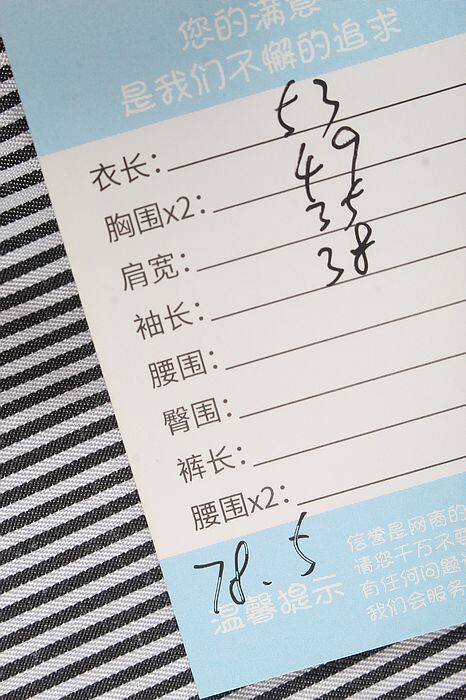 您的满意
是我们不懈的追求
衣长: 53
胸围x2: 49
肩宽: 35
袖长: 38
腰围:
臀围:
裤长:
腰围x2:
78.5
温馨提示
信誉是网商的
请您千万不要
有任何问题
我们会服务